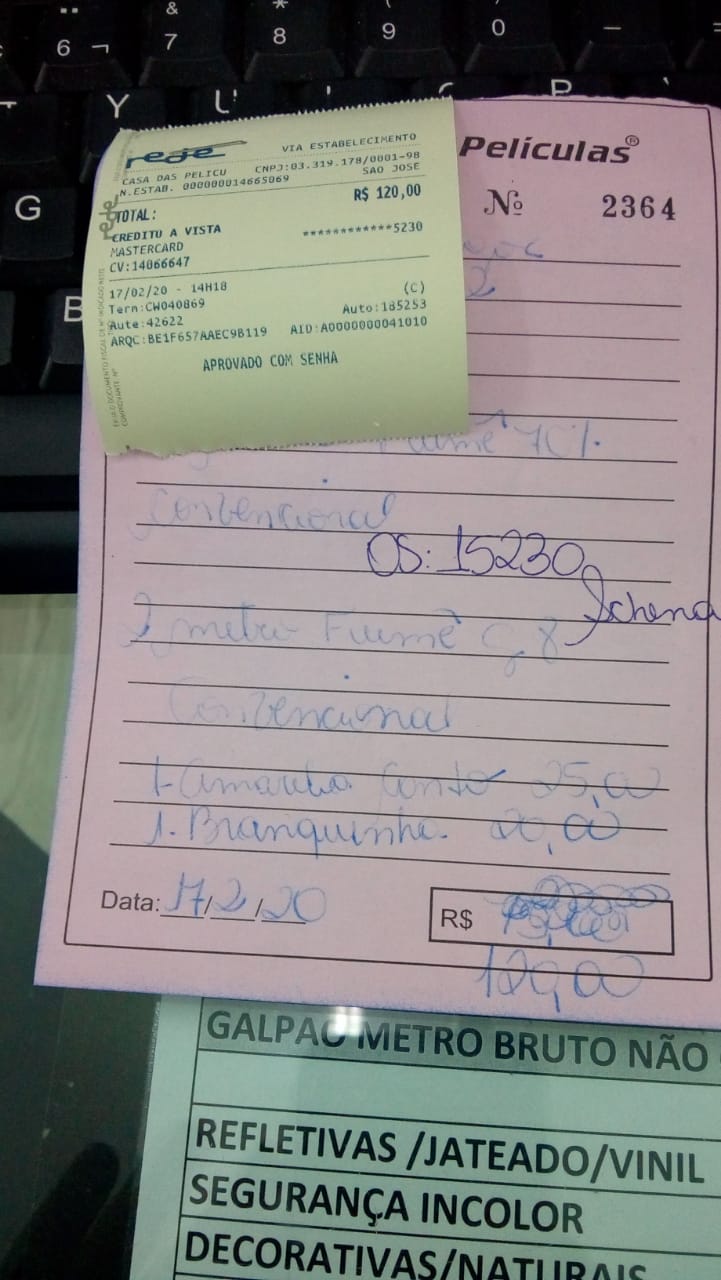 6 ¬
&
7
*
8
(
9
0
Y
G
B
rede
VIA ESTABELECIMENTO
CASA DAS PELICU CNPJ:03.319.178/0001-98
N.ESTAB. 000000014665069 SAO JOSE
TOTAL: R$ 120,00
CREDITO A VISTA ************5230
MASTERCARD
CV:14066647
17/02/20 - 14H18 (C)
Term:CW040869 Auto:185253
Aute:42622
ARQC:BE1F657AAEC9B119 AID:A0000000041010
APROVADO COM SENHA
Películas®
Nº 2364
Fumê 70%
Convencional
OS: 15230
Schena
2 metro Fumê G 8
Convencional
1. Amarelo Canto 25,00
1. Branquinho 20,00
Data: 17/2/20
R$
120,00
GALPAO METRO BRUTO NÃO
REFLETIVAS /JATEADO/VINIL
SEGURANÇA INCOLOR
DECORATIVAS/NATURAIS